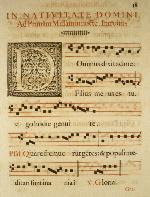 IN NATIVITATE DOMINI.
Ad Primam Missam in nocte. Introitus
Dominus dixit ad me:
Filius meus es tu,
ego hodie genui te.
Psal. Quare fremuerunt gentes: & populi me-
ditati sunt inania? ℣. Gloria.